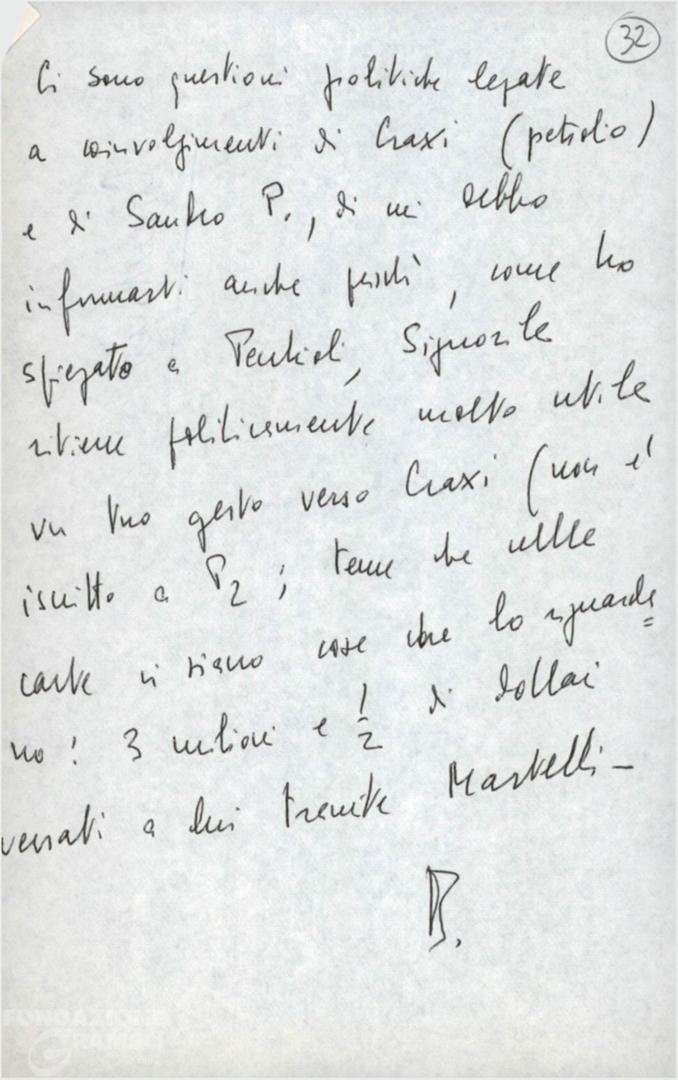 32
Ci sono questioni politiche legate
a coinvolgimenti di Craxi (petrolio)
e di Sandro P., di cui debbo
informarti anche perché, come ho
spiegato a Pecchioli, Signorile
ritiene politicamente molto utile
un tuo gesto verso Craxi (non è
iscritto a P2; teme che nelle
carte vi siano cose che lo riguarda=
no! 3 milioni e 1/2 di dollari
versati a lui tramite Martelli-
B.
FONDAZIONE
GRAMSCI